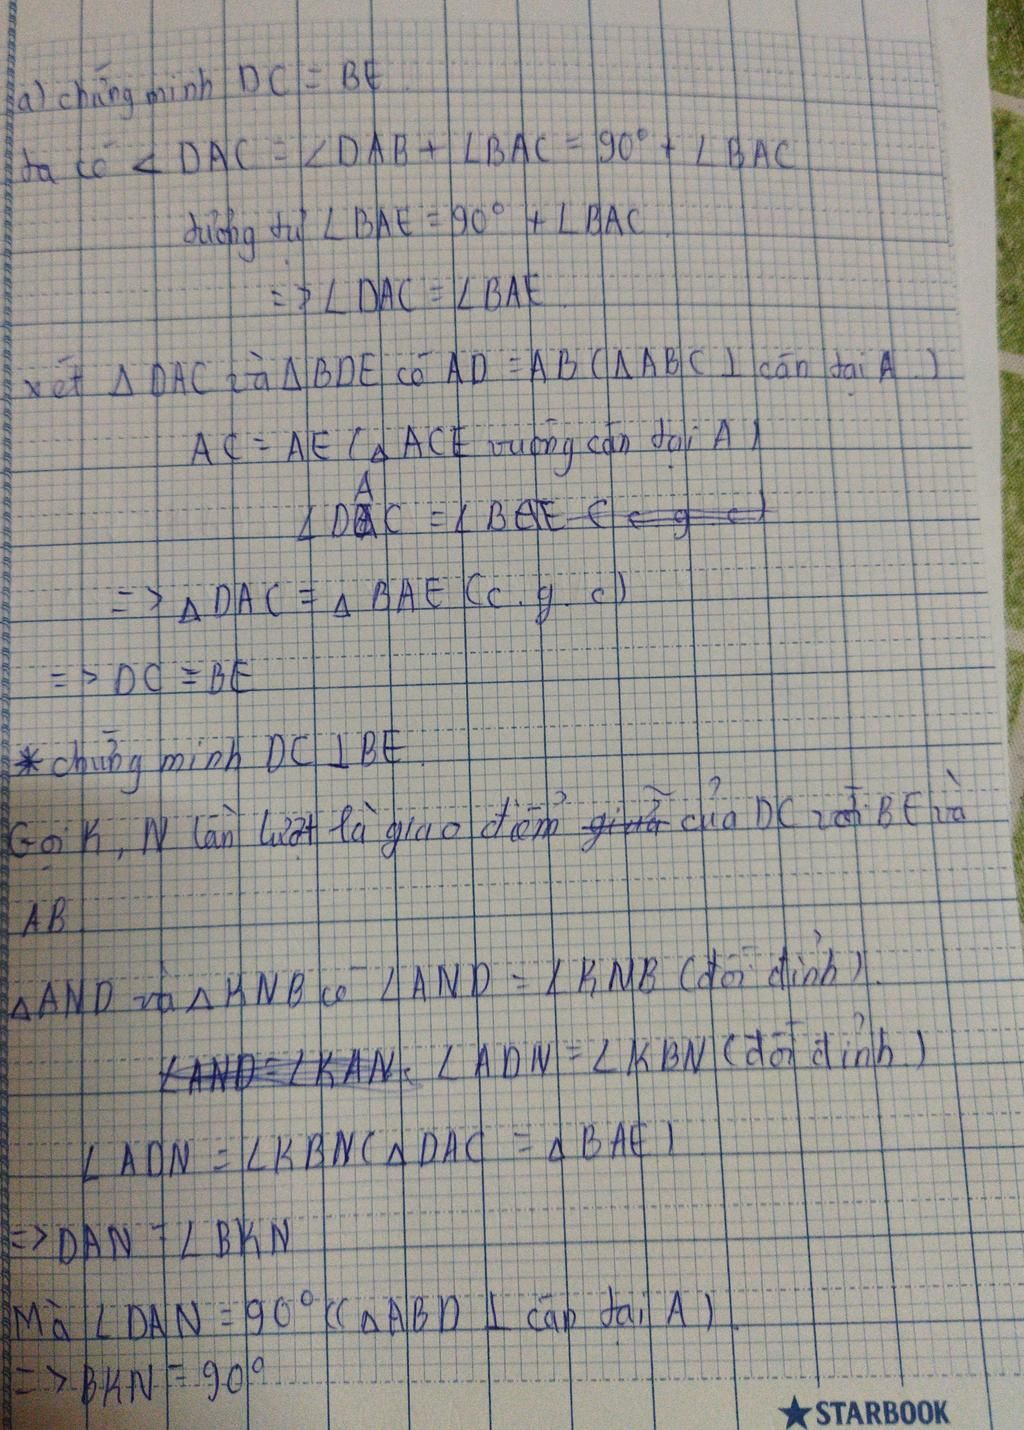 a) chứng minh DC = BE.
ta có ∠DAC = ∠DAB + ∠BAC = 90° + ∠BAC
tương tự ∠BAE = 90° + ∠BAC.
=> ∠DAC = ∠BAE.
xét ΔDAC và ΔBDE có AD = AB (ΔABC ⊥ cân tại A)
AC = AE (ΔACE vuông cân tại A)
∠DAC = ∠BAE (c g c)
=> ΔDAC = ΔBAE (c.g.c)
=> DC = BE
* chứng minh DC ⊥ BE.
Gọi K, N lần lượt là giao điểm giữa của DC với BE và
AB
ΔAND và ΔKNB có ∠AND = ∠KNB (đối đỉnh).
∠AND = ∠KAN. ∠ADN = ∠KBN (đối đỉnh)
∠ADN = ∠KBN (ΔDAC = ΔBAE)
=> DAN = ∠BKN
Mà ∠DAN = 90° ((ΔABD ⊥ cân tại A).
=> BKN = 90°
STARBOOK